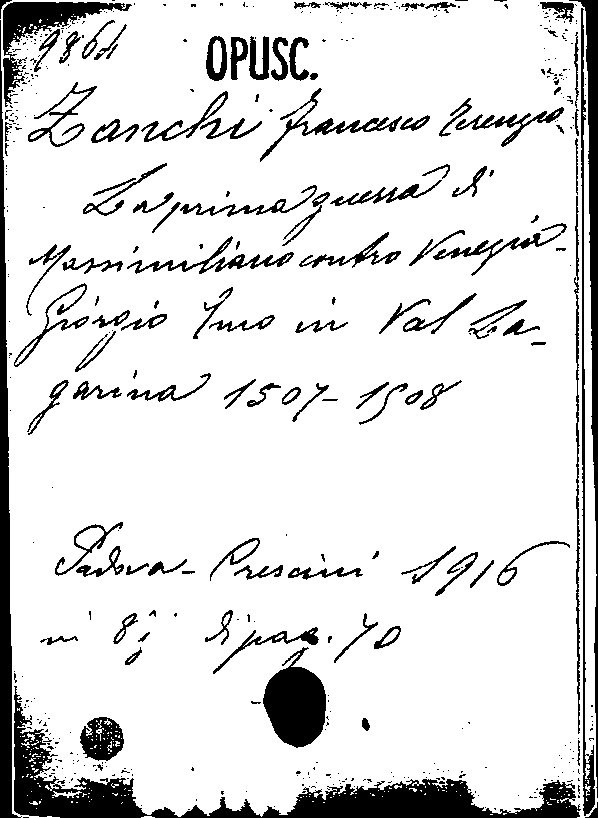 9864
OPUSC.
Zanchi Francesco Terenzio
La prima guerra di
Massimiliano contro Venezia -
Giorgio Emo in Val La-
garina 1507-1508
Padova - Crescini 1916
in 8° di pag. 70